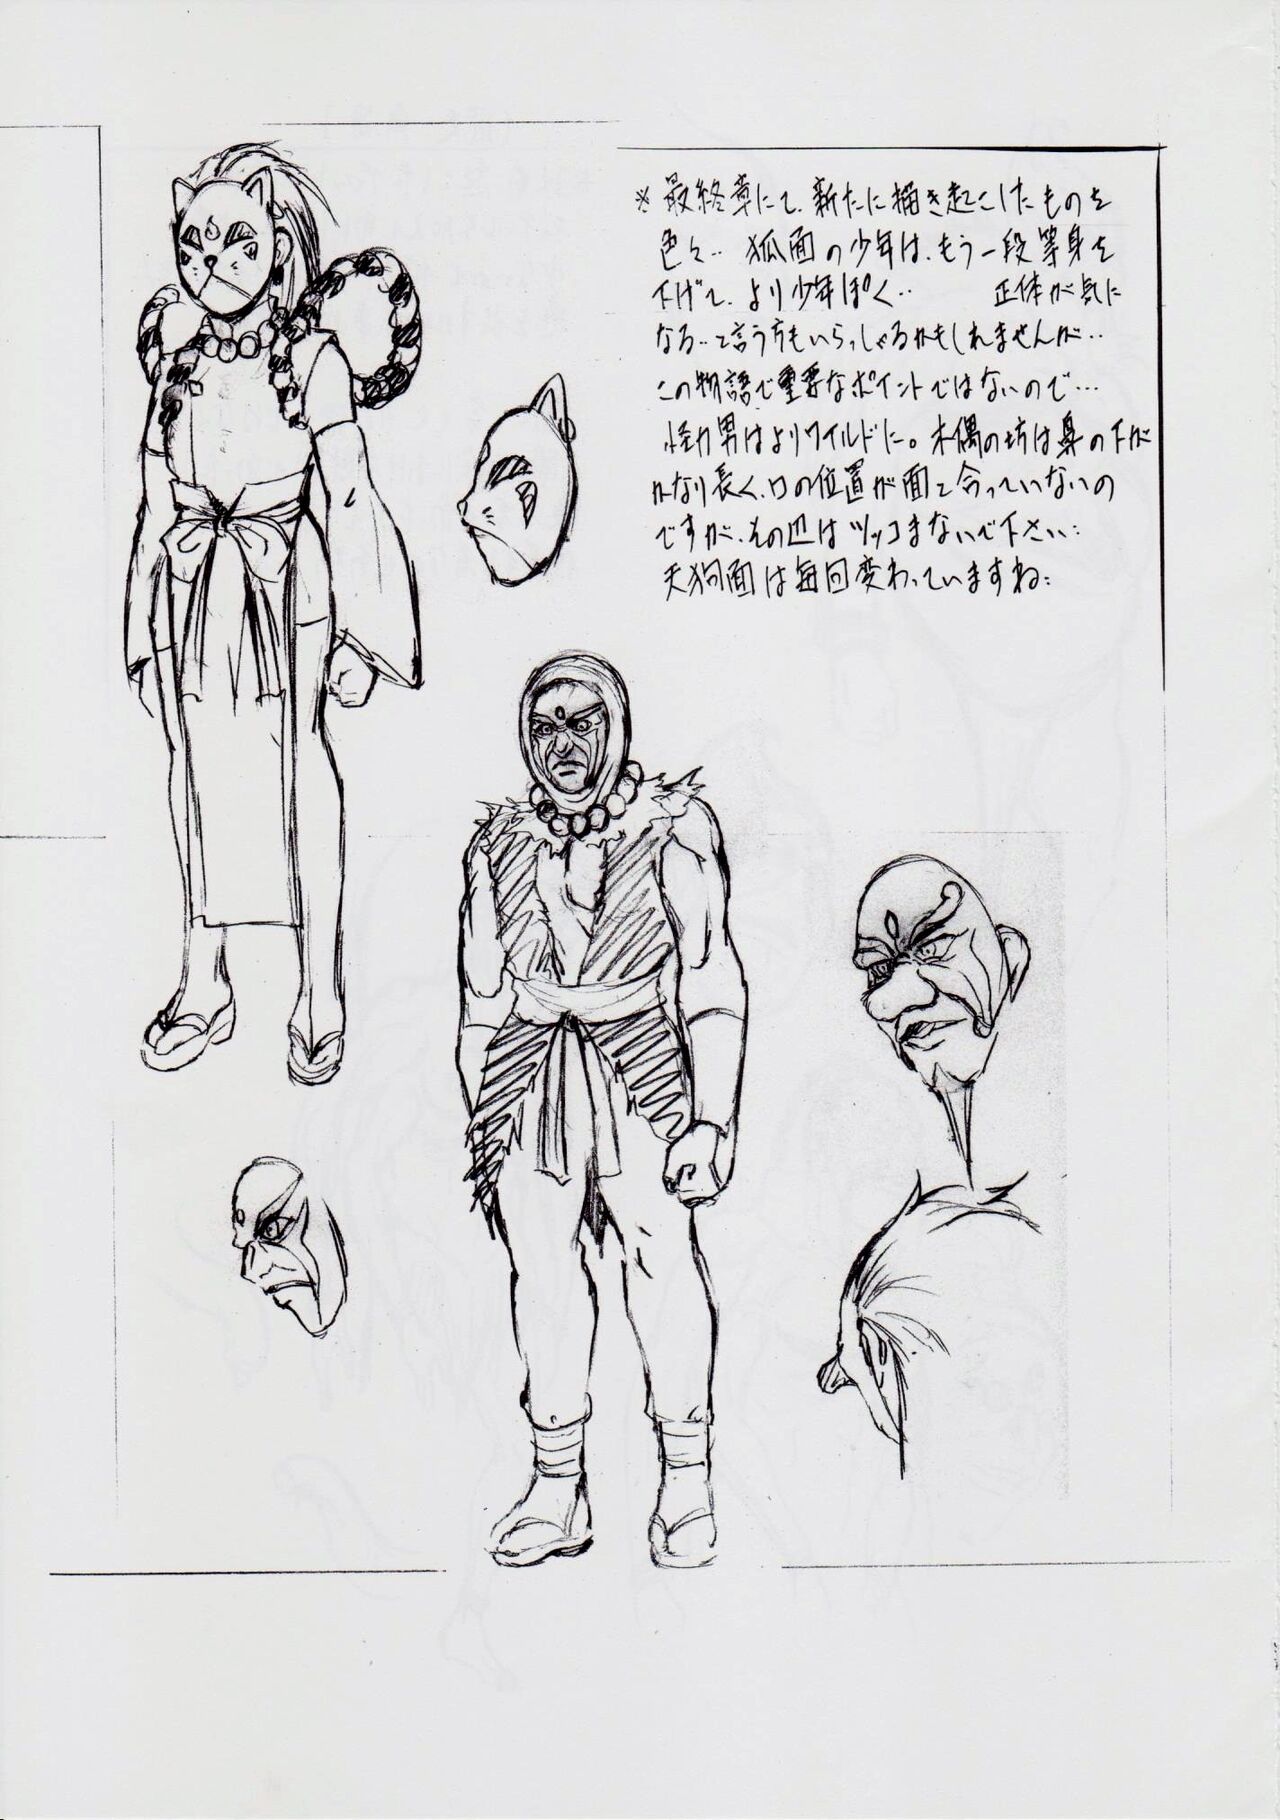 ※最終章にて、新たに描き起こしたものを
色々‥ 狐面の少年は、もう一段等身を
下げて、より少年ぽく‥ 正体が気に
なる‥と言う方もいらっしゃるかもしれませんが‥
この物語で重要なポイントではないので…
怪力男はよりワイルドに。木偶の坊は鼻の下が
かなり長く、口の位置が面と合っていないの
ですが、その辺はツッコまないで下さい：
天狗面は毎回変わっていますね：